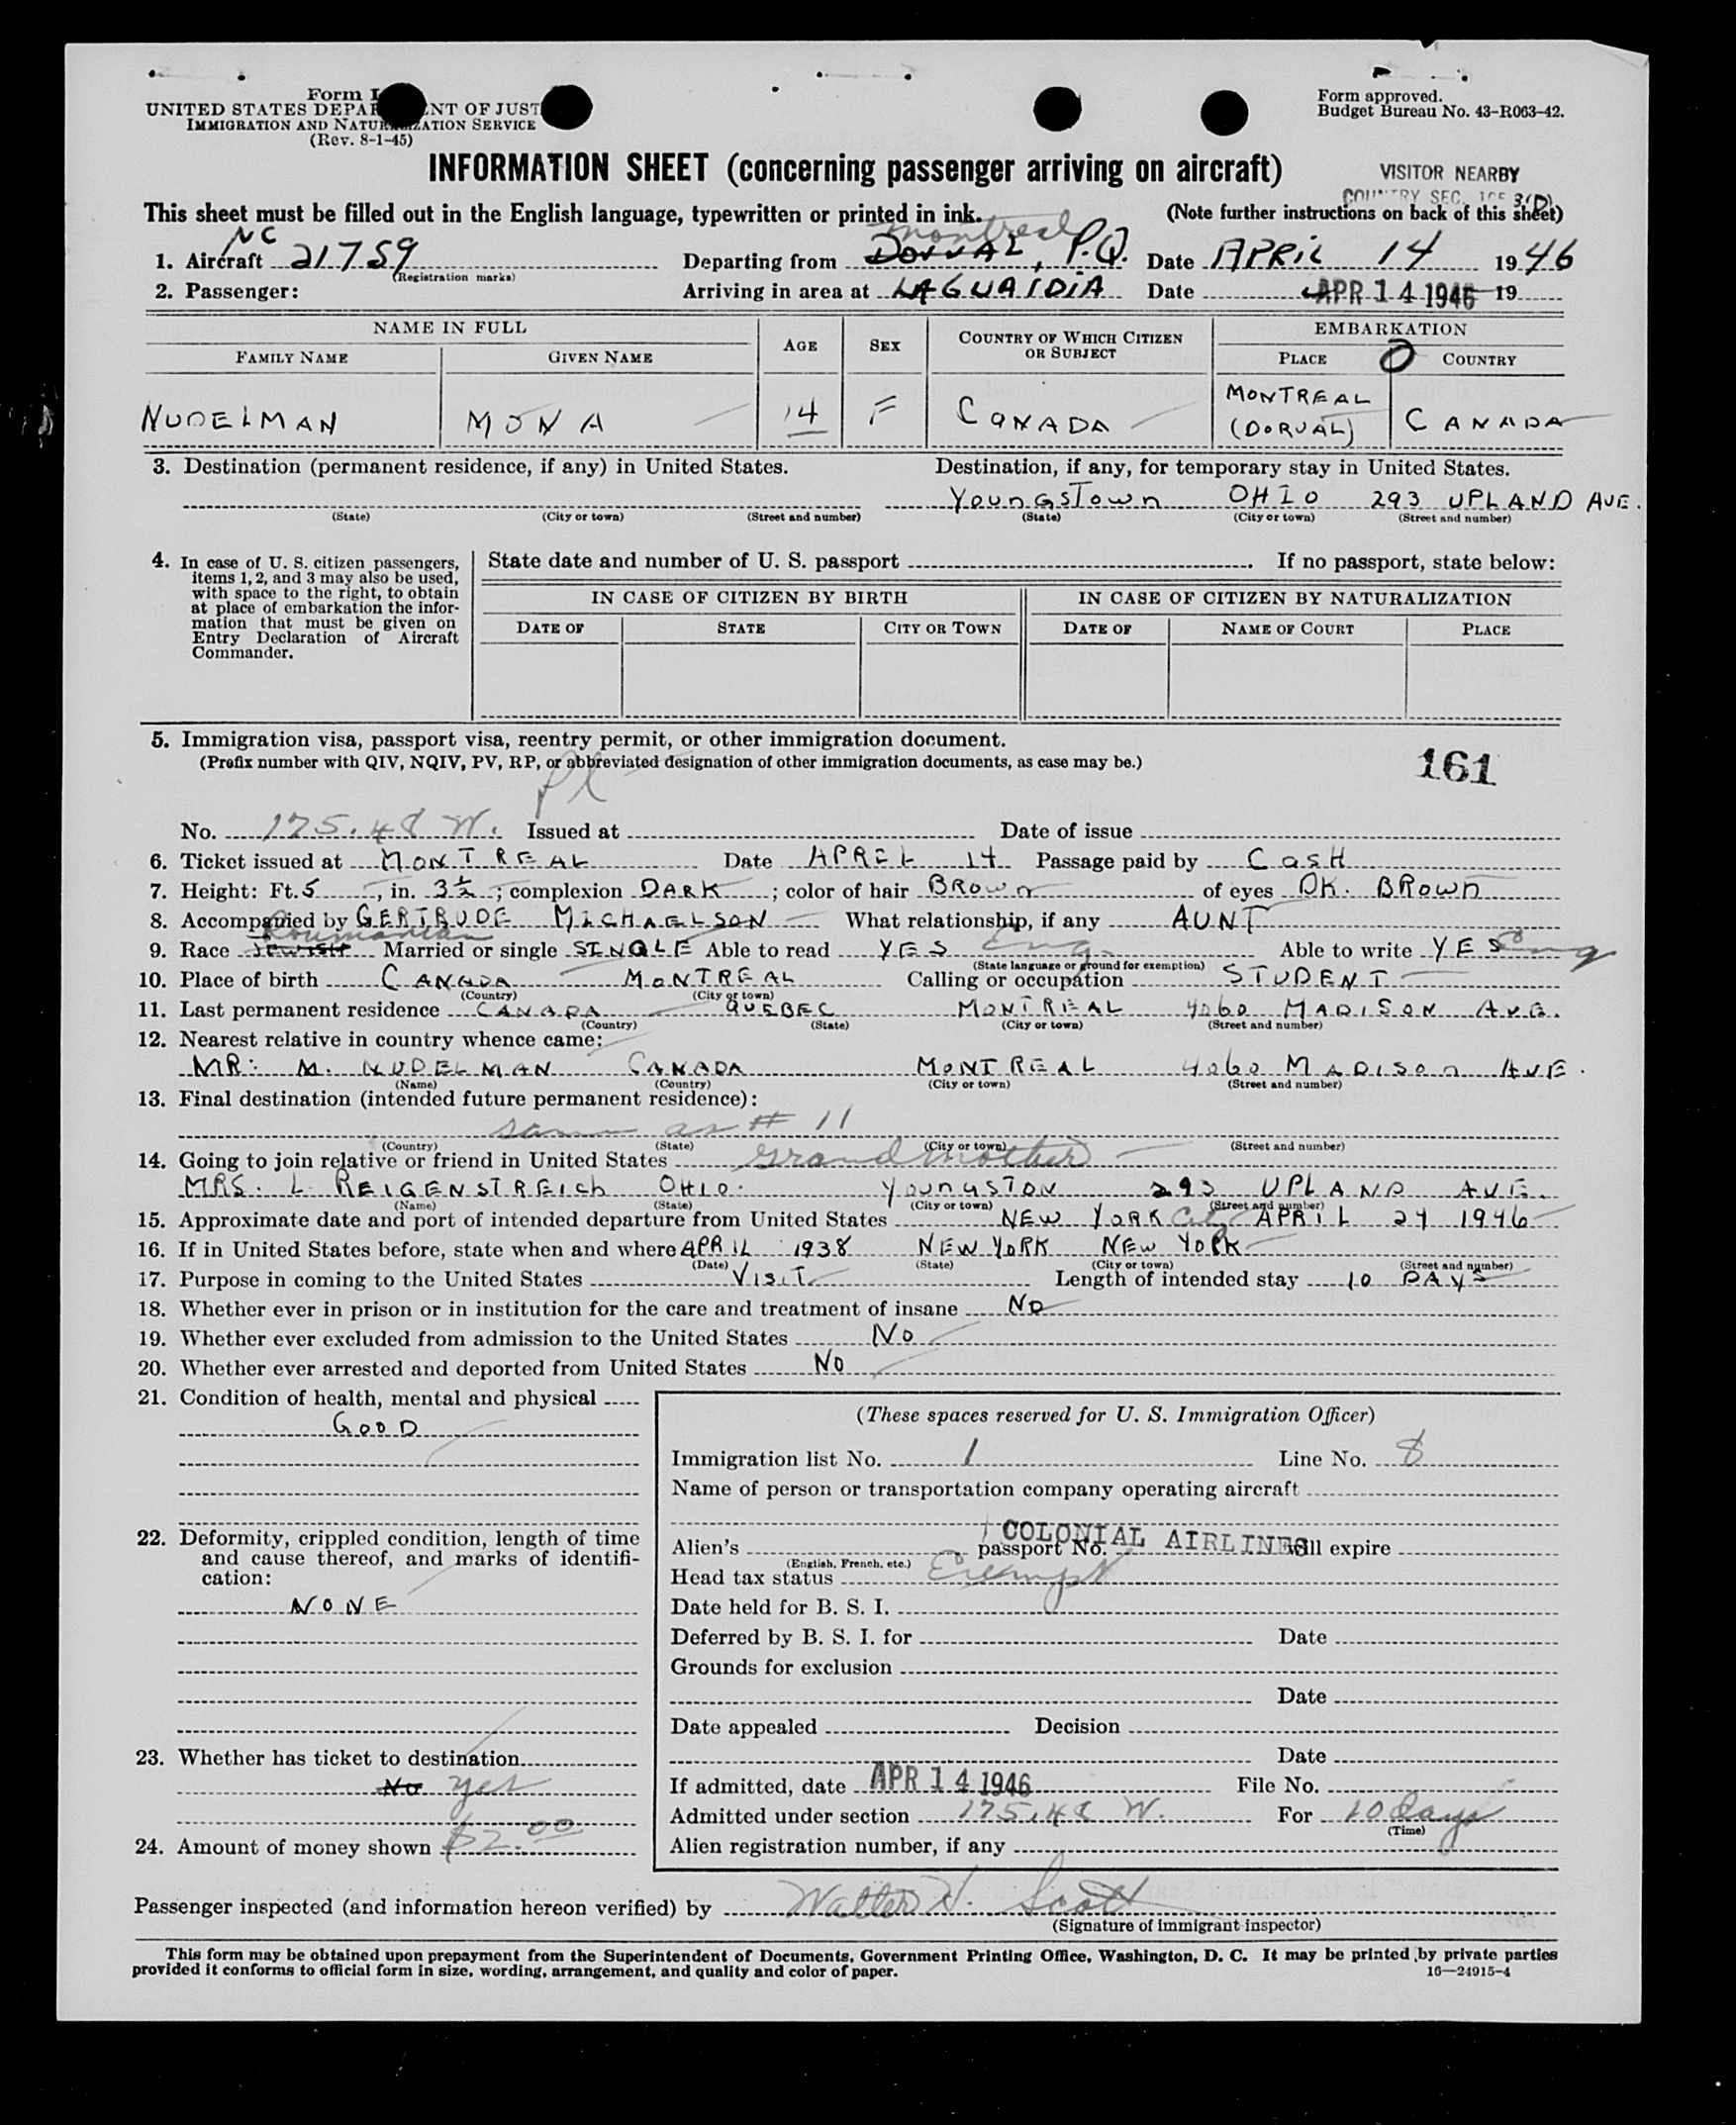 Form I
UNITED STATES DEPARTMENT OF JUST
IMMIGRATION AND NATURALIZATION SERVICE
(Rev. 8-1-45)
Form approved.
Budget Bureau No. 43-R063-42.
INFORMATION SHEET (concerning passenger arriving on aircraft)
VISITOR NEARBY
COUNTRY SEC. 3(D)
This sheet must be filled out in the English language, typewritten or printed in ink.
(Note further instructions on back of this sheet)
1. Aircraft NC 21759 Departing from Montreal DORVAL, P.Q. Date APRIL 14 1946
(Registration marks)
2. Passenger: Arriving in area at LAGUARDIA Date APR 14 1946 19
NAME IN FULL AGE SEX COUNTRY OF WHICH CITIZEN OR SUBJECT EMBARKATION
FAMILY NAME GIVEN NAME PLACE COUNTRY
NUDELMAN MONA 14 F CANADA MONTREAL (DORVAL) CANADA
3. Destination (permanent residence, if any) in United States. Destination, if any, for temporary stay in United States.
YOUNGSTOWN OHIO 293 UPLAND AVE.
(State) (City or town) (Street and number) (State) (City or town) (Street and number)
4. In case of U. S. citizen passengers, items 1, 2, and 3 may also be used, with space to the right, to obtain at place of embarkation the information that must be given on Entry Declaration of Aircraft Commander.
State date and number of U. S. passport . If no passport, state below:
IN CASE OF CITIZEN BY BIRTH IN CASE OF CITIZEN BY NATURALIZATION
DATE OF STATE CITY OR TOWN DATE OF NAME OF COURT PLACE
5. Immigration visa, passport visa, reentry permit, or other immigration document.
(Prefix number with QIV, NQIV, PV, RP, or abbreviated designation of other immigration documents, as case may be.)
161
No. 175.48 W. Issued at Date of issue
6. Ticket issued at MONTREAL Date APRIL 14 Passage paid by CASH
7. Height: Ft. 5, in. 3½; complexion DARK; color of hair BROWN of eyes DK. BROWN
8. Accompanied by GERTRUDE MICHAELSON What relationship, if any AUNT
Roumanian
9. Race JEWISH Married or single SINGLE Able to read YES Eng Able to write YES Eng
(State language or ground for exemption)
10. Place of birth CANADA MONTREAL Calling or occupation STUDENT
(Country) (City or town)
11. Last permanent residence CANADA QUEBEC MONTREAL 4060 MADISON AVE.
(Country) (State) (City or town) (Street and number)
12. Nearest relative in country whence came:
MR: M. NUDELMAN CANADA MONTREAL 4060 MADISON AVE.
(Name) (Country) (City or town) (Street and number)
13. Final destination (intended future permanent residence):
same as # 11
(Country) (State) (City or town) (Street and number)
14. Going to join relative or friend in United States Grandmother
MRS. L REIGENSTREICH OHIO. YOUNGSTON 293 UPLAND AVE.
(Name) (State) (City or town) (Street and number)
15. Approximate date and port of intended departure from United States NEW YORK City APRIL 24 1946
16. If in United States before, state when and where APRIL 1938 NEW YORK NEW YORK
(Date) (State) (City or town) (Street and number)
17. Purpose in coming to the United States VISIT Length of intended stay 10 DAYS
18. Whether ever in prison or in institution for the care and treatment of insane NO
19. Whether ever excluded from admission to the United States NO
20. Whether ever arrested and deported from United States NO
21. Condition of health, mental and physical
GOOD
22. Deformity, crippled condition, length of time and cause thereof, and marks of identification:
NONE
23. Whether has ticket to destination
No yes
24. Amount of money shown $2.00
(These spaces reserved for U. S. Immigration Officer)
Immigration list No. 1 Line No. 8
Name of person or transportation company operating aircraft
COLONIAL AIRLINES
Alien's passport No. will expire
(English, French, etc.)
Head tax status Exempt
Date held for B. S. I.
Deferred by B. S. I. for Date
Grounds for exclusion
Date
Date appealed Decision
Date
If admitted, date APR 14 1946 File No.
Admitted under section 175.48 W. For 10 days
(Time)
Alien registration number, if any
Passenger inspected (and information hereon verified) by Walter H. Scott
(Signature of immigrant inspector)
This form may be obtained upon prepayment from the Superintendent of Documents, Government Printing Office, Washington, D. C. It may be printed by private parties
provided it conforms to official form in size, wording, arrangement, and quality and color of paper.
16—24915-4